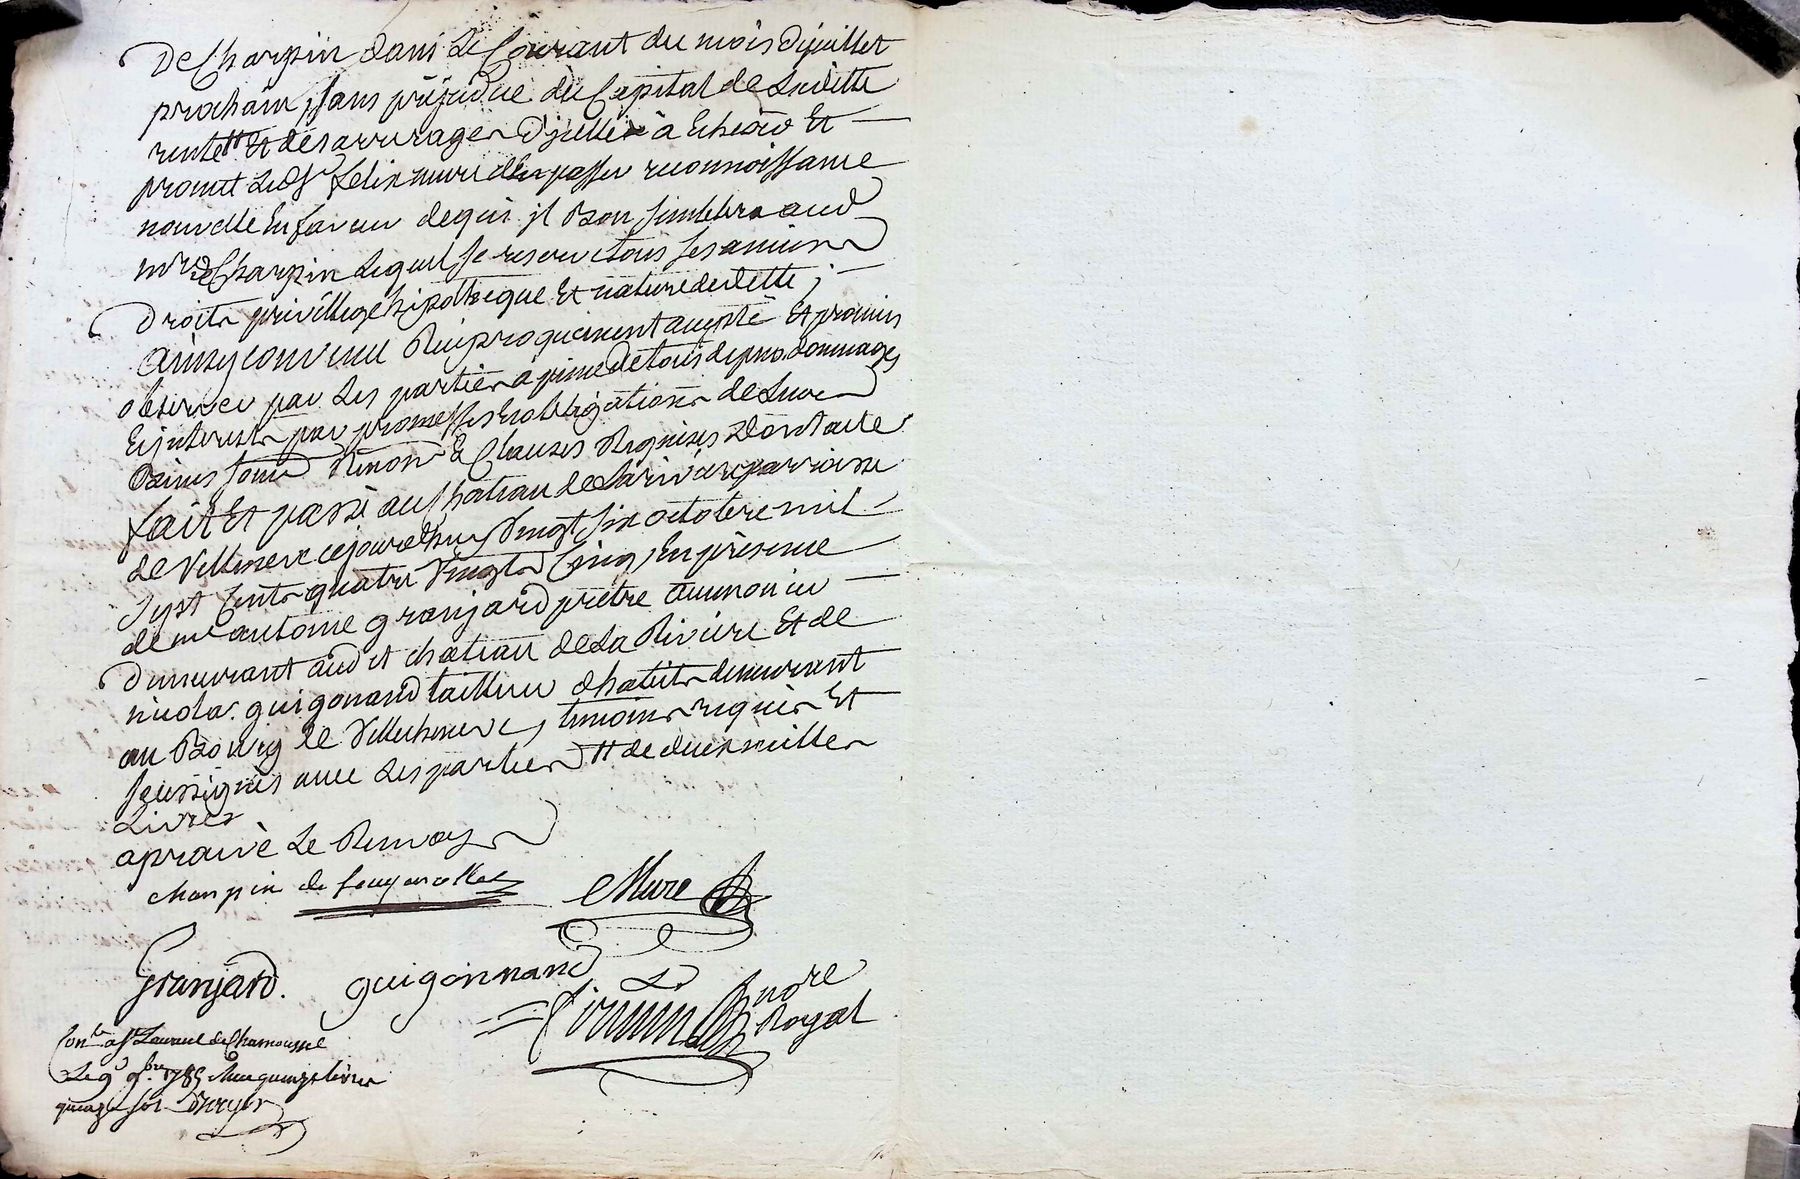 De Charpin dans Le Courant du mois de juillet
prochain, sans préjudice du Capital de Laditte
rente # Et des arrerages d'jcelle à Echeoir Et
promet Led. Sr passer reconnoissance
nouvelle En faveur de qui jl Bon semblera aud
mre de Charpin Lequel se reserve tous ses actions
Droits privillege hipotheque Et nature de dette ;
ainsy convenu Reciproquement accepté Et promis
observer par Les parties a peine de tous depens dommages
Et jnterests par promesses obligations de Leurs
Biens soum. Renon. & Clauses Requises Dont acte
fait Et passé au Chateau de La riviere parroisse
de Villeneuve cejourdhuy Vingt six octobre mil
sept Cents quatre Vingts Cinq, En présence
de mre antoine granjard prêtre aumonier
Demeurant audit chateau de La Riviere Et de
nicolas guigonand tailleur d'habits demeurant
au Bourg de Villecheneve, temoins requis Et
soussignés avec Les parties # de deux mille
Livres
aprouvé Le Renvoy
charpin de feugerolles Mure
Granjard. guigonnand
not re Royal
Con lé a St Laurent de Chamousset
Le 9 9bre 1785 Reçu quinze livres
quinze sols